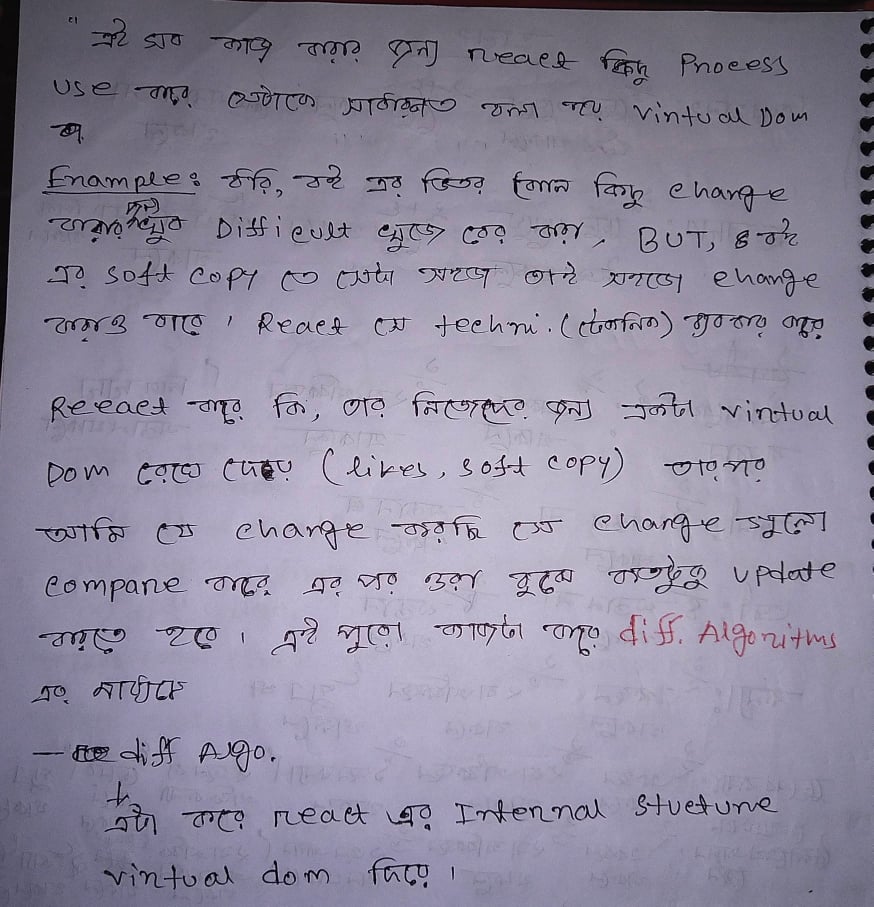 " এই সব কাজ করার জন্য React কিছু Process
use করে সেটাকে সাধারনত বলা হয় virtual Dom
Example: ধরি, বই এর ভিতর কোন কিছু change
করার জন্য খুব Difficult খুজে বের করা, BUT, বই
এর soft copy তে সেটা সহজ তাই সহজে change
করাও যাবে। React সে techni. (টেকনিক) ব্যবহার করে
Reeact করে কি, তার নিজেদের জন্য একটা virtual
Dom রেখে দেয় (likes, soft copy) তারপর
আমি যে change করছি সে change গুলো
compare করে এর পর ওরা বুঝে কতটুকু update
করতে হবে। এই পুরো কাজটা করে diff. Algorithms
এর মাধ্যমে
— diff Algo.
এটা করে react এর Internal Stucture
virtual dom দিয়ে।